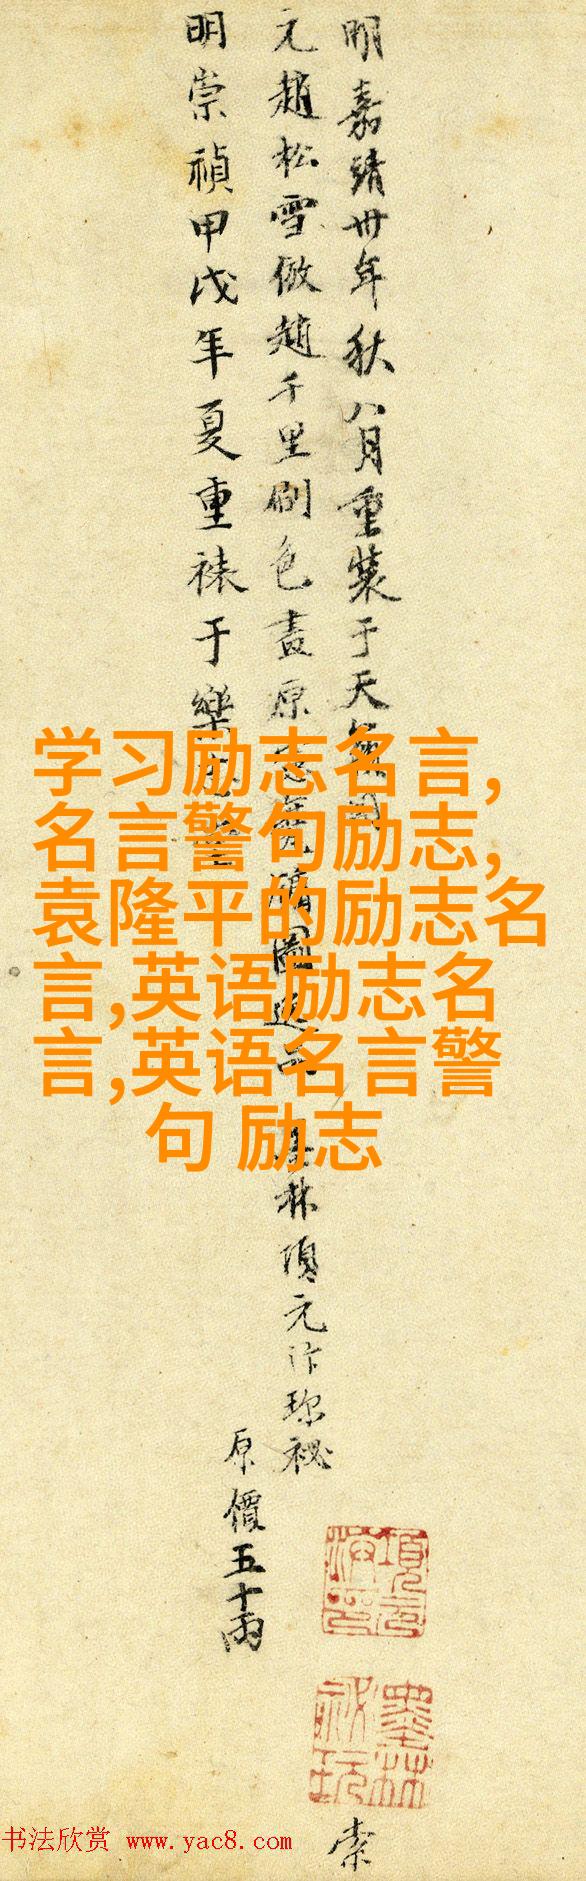 明嘉靖卅年秋八月重裝于天籟閣
元趙松雪倣趙千里刷色畫
墨林項元汴珍祕
原價五十兩
明崇禎甲戊年夏重裱于樂
学习励志名言,
名言警句励志,
袁隆平的励志名
言,英语励志名
言,英语名言警
句 励志
項元汴印
墨林祕玩
索
书法欣赏 www.yac8.com